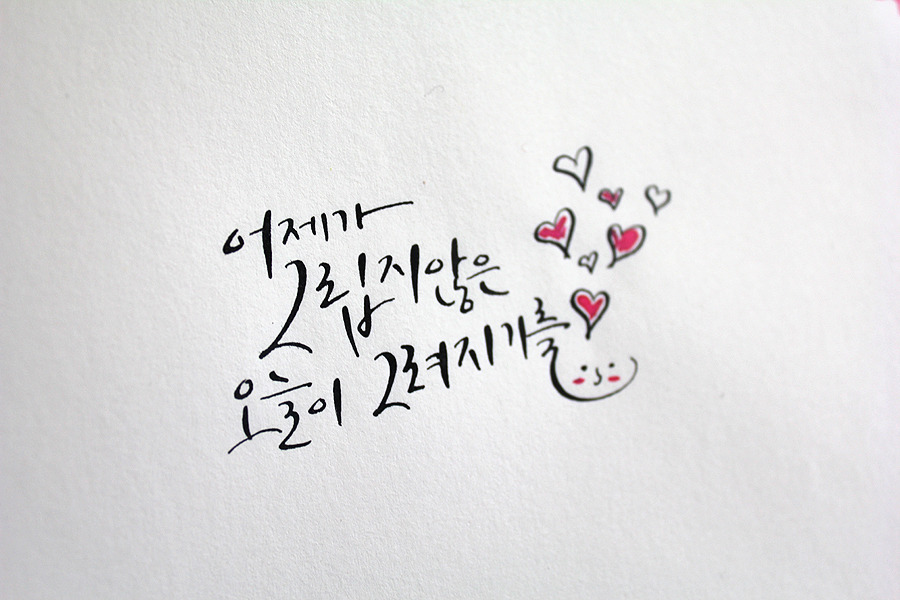 어제가
그립지않은
오늘이 그려지기를